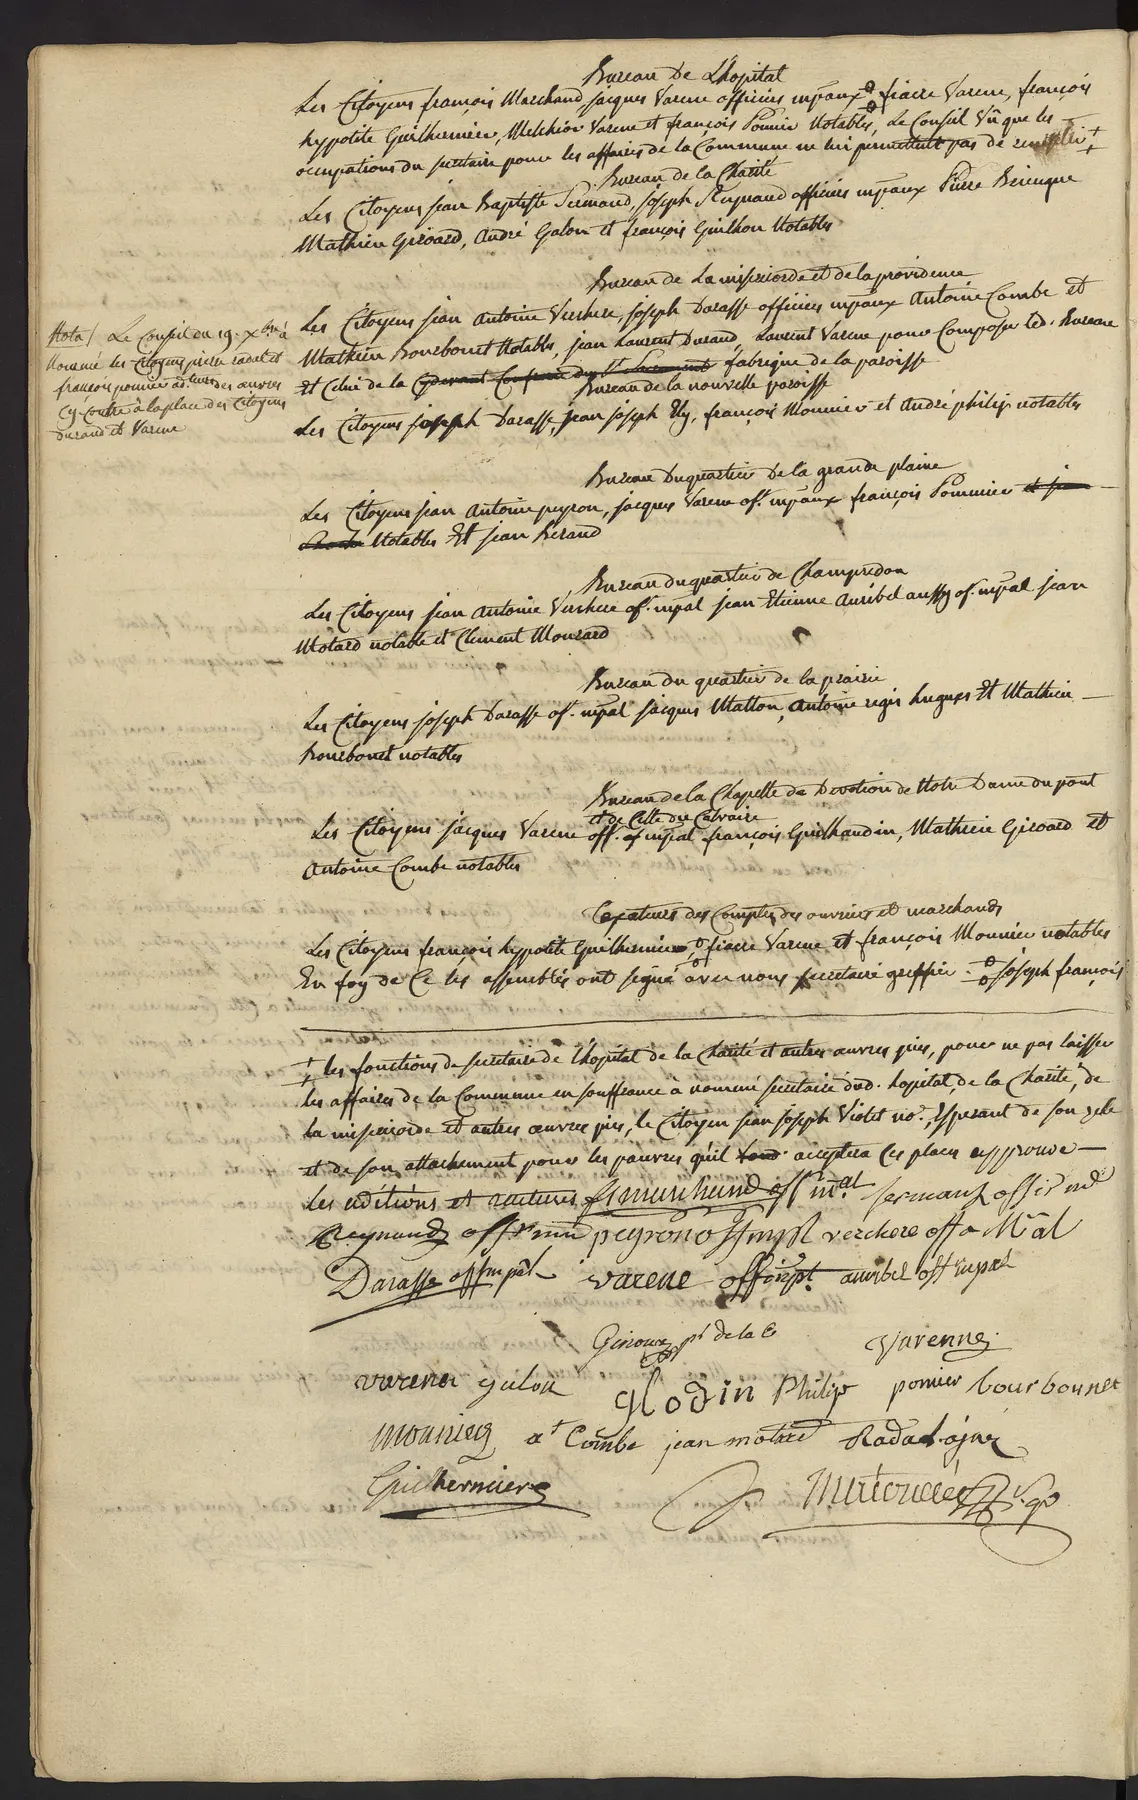 Bureau De L'hopital
Les Citoyens françois Marchand, jacques Varene officiers mpaux fiacre Varene, françois
hyppolite Guilhermier, Melchior Varene et françois Pomier Notables, Le Conseil Vû que les
occupations du secretaire pour les affaires de la Commune ne lui permettent pas de remplir
Bureau de la Charité
Les Citoyens jean Baptiste Sermand, joseph Reynaud officiers mpaux Pierre
Mathieu Giroard, André Galon et françois Guilhon Notables
Bureau de La misericorde et de la providence
Les Citoyens jean Antoine Verchere, joseph Darasse officiers mpaux Antoine Combe et
Mathieu Bourbonet Notables, jean Laurent Durand, Laurent Varene pour Composer led. Bureau
et Celui de la cydevant Confrerie du St Sacrement fabrique de la paroisse
Nota/ Le Conseil du 19. Xbre à
Nommé les Citoyens pierre radal et
françois pomier ad.teurs des œuvres
Cy-contre à la place des Citoyens
Durand et Varene
Bureau de la nouvelle paroisse
Les Citoyens joseph Darasse, jean joseph Ely, françois Mounier et André philip notables
Bureau Du quartier De la grande plaine
Les Citoyens jean Antoine peyron, jacques Varene of. mpaux françois Pommier et jean
Notables Et jean Beraud
Bureau du quartier de Champredon
Les Citoyens jean Antoine Verchere of. mpal jean Etienne Auribel aussy of. mpal jean
Motard notable et Clement Mourard
Bureau du quartier de la prairie
Les Citoyens joseph Darasse of. mpal jacques Matton, Antoine regis hugues Et Mathieu
Bourbonet notables
Bureau de la Chapelle de Devotion de Notre Dame du pont
et de Celle du Calvaire
Les Citoyens jacques Varene off. mpal françois Guilhaudin, Mathieu Giroard et
Antoine Combe notables
des Comptes des ouvriers et marchands
Les Citoyens françois hyppolite Guilhermier fiacre Varene et françois Mounier notables
En foy de Ce les assemblés ont signé avec nous secretaire greffier joseph françois
les fonctions de secretaire de l'hopital de la Charité et autres œuvres pies, pour ne pas laisser
les affaires de la Commune en souffrance à nommé secretaire dud. hopital, de la Charité, de
la misericorde et autres œuvres pies, le Citoyen jean joseph Violet no.re, Esperant de son zele
et de son attachement pour les pauvres qu'il acceptera Ces places approuvé
les aditions et ratures fs marchand off m.al sermand offir m.l
Reynaud off.r mu peyron off mpl verchere offr M.al
Darasse off mpal varene off mpl. auribel off mpal
Giroux pr de la C Varenne
varene galon Glodin Philip pomier bourbonnet
mounier at Combe jean motard Radal ajné
Guilhermier